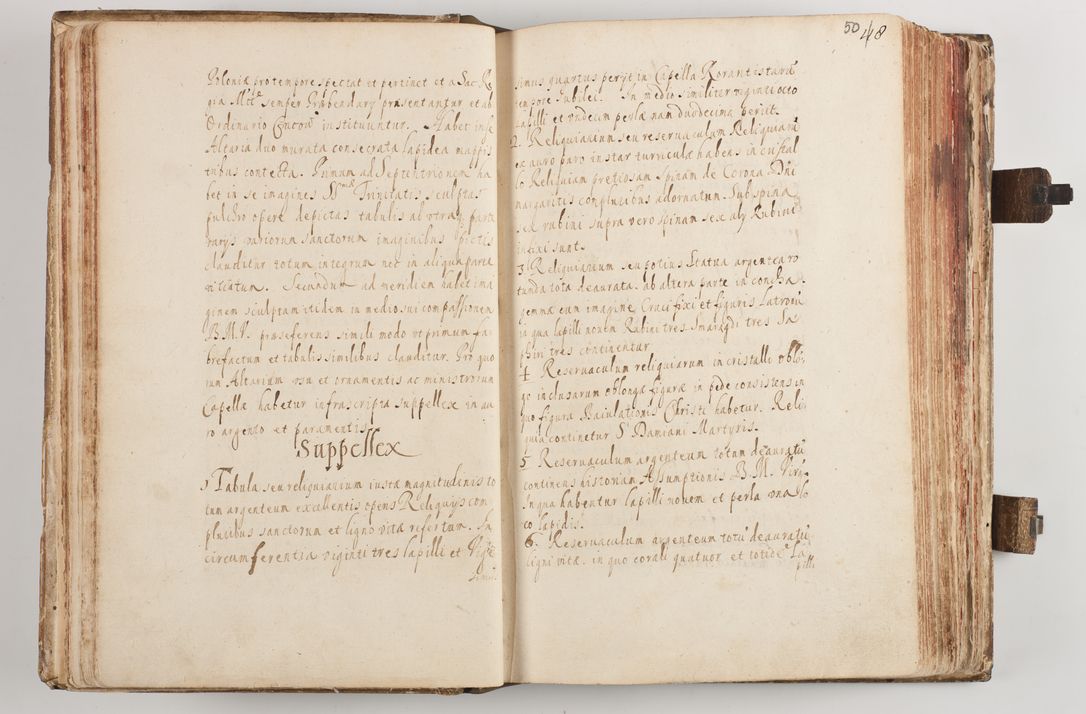 Poloniæ pro tempore spectat et pertinet et a Sac. Re
gia Mtte semper Præbendary præsentantur et ab
Ordinario instituuntur. Habet in se
Altaria duo murata consecrata lapidea mappis
tribus contecta. Primum ad Septentrionem ha
bet in se imagines SSmæ Trinitatis sculptas
pulchro opere depictas tabulis ab utraq parte
varys variorum sanctorum imaginibus pictis
clauditur totum integrum nec in aliqua parte
vitiatum. Secundum ad meridiem habet ima
ginem sculptam itidem in medio sui compassionem
B. M. V. præseferens simili modo ut primum fa
brefactum et tabulis similibus clauditur. Pro quo
rum Altarium usu et ornamentis ac ministrorum
Capellæ habetur infrascripta suppellex in au
ro argento et paramentis.
Suppellex
1 Tabula seu reliquiarium iustæ magnitudinis to
tum argenteum excellentis operis Reliquys com
pluribus sanctorum et ligno vitæ refertum. In
circumferentia viginti tres lapilli et Vige
simus
50 48
simus quartus peryt in Capella Rorantistarū
tempore Iubilei. In medio similiter viginti octo
lapilli et undecim perlæ nam duodecima periit.
2. Reliquiarium seu reservaculum Reliquiarū
ex auro puro instar turriculæ habens in cristal
lo Reliquiam pretiosam spinam de Corona Dni
margaritis compluribus adornatum. Sub spina
sex rubini supra vero spinam sex aly Rubini
infixi sunt.
3 Reliquiarium seu potius Statua argentea ro
tunda tota deaurata. ab altera parte in concha
gemmæ cum imagine Crucifixi et figuris Latronū
in qua lapilli novem Rubini tres Smaragdi tres Sa
phiri tres continentur
4 Reservaculum reliquiarum in cristallo oblo
go inclusarum oblongæ figuræ in pede consistens in
quo figura Baiulationis Christi habetur. Reli
quia continetur S Damiani Martyris.
5 Reservaculum argenteum totum deauratū
continens historiam Assumptionis B. M. Virg
In qua habentur lapilli novem et perla una lo
co lapidis.
6. Reservaculum argenteum totū deauratū
ligni vitæ. in quo corali quatuor et totidē la
pilli